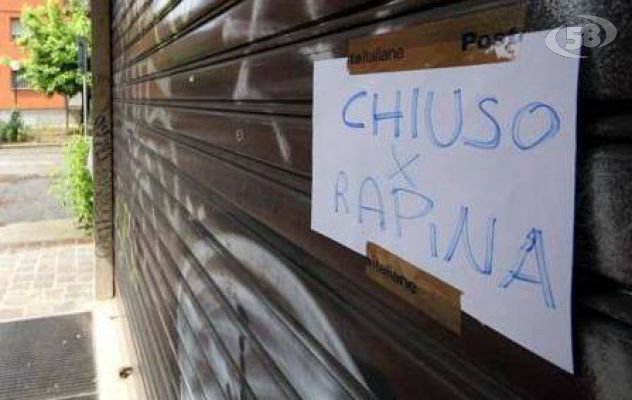 58
teitaliane Post
CHIUSO
X
RAPINA
eitaliane